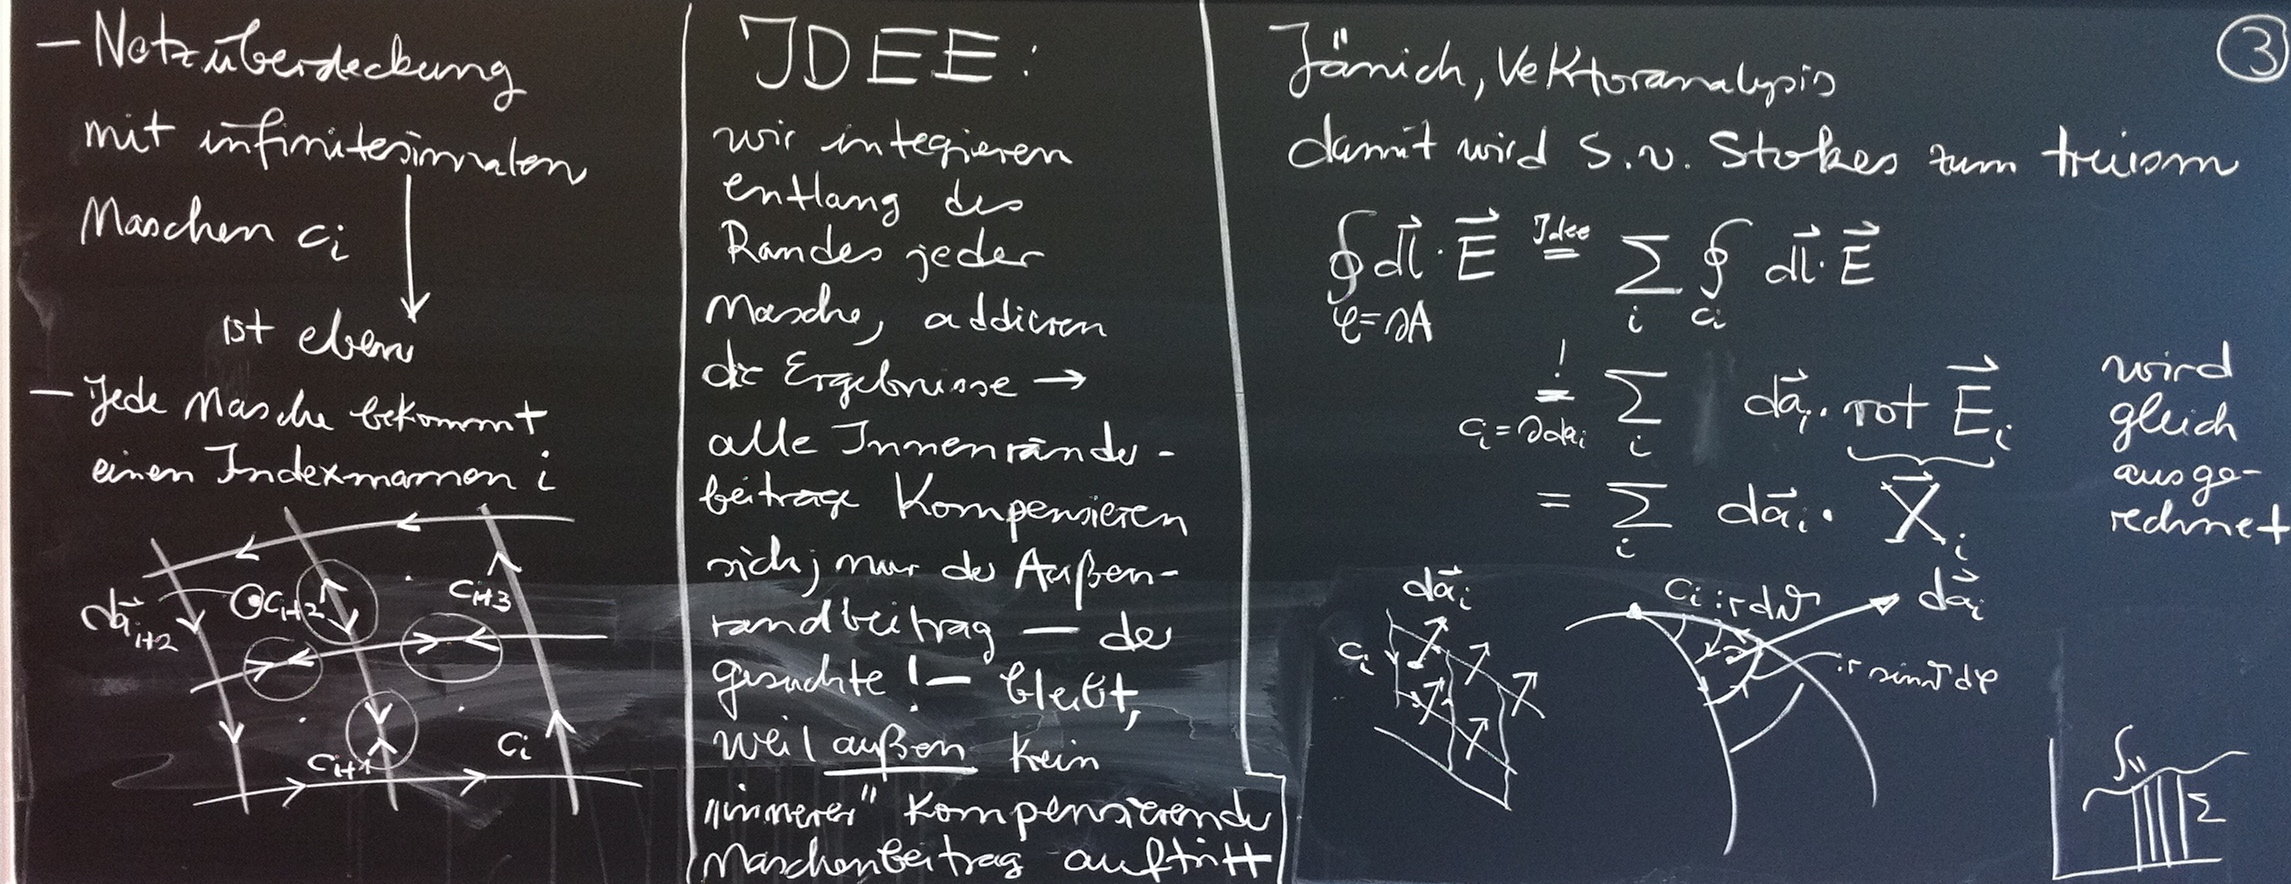 – Netzüberdeckung
mit infinitesimalen
Maschen cᵢ
ist eben
– Jede Masche bekommt
einen Indexnamen i
da⃗ᵢ₊₂
cᵢ₊₂
cᵢ₊₃
cᵢ₊₁
cᵢ
IDEE:
wir integrieren
entlang des
Randes jeder
Masche, addieren
die Ergebnisse →
alle Innenränder-
beiträge kompensieren
sich; nur der Außen-
randbeitrag – der
gesuchte! – bleibt,
weil außen kein
„innerer" kompensierender
Maschenbeitrag auftritt
③
Jänich, Vektoranalysis
damit wird S.v. Stokes zum truism
∮ dl⃗ · E⃗ Idee = Σ ∮ dl⃗ · E⃗
𝒞=∂A i cᵢ
! = Σ da⃗ᵢ · rot E⃗ᵢ
cᵢ = ∂daᵢ i
= Σ da⃗ᵢ · X⃗ᵢ
i
wird
gleich
ausge-
rechnet
da⃗ᵢ
cᵢ
cᵢ : r dϑ
da⃗ᵢ
: r sinϑ dφ
∫
Σ